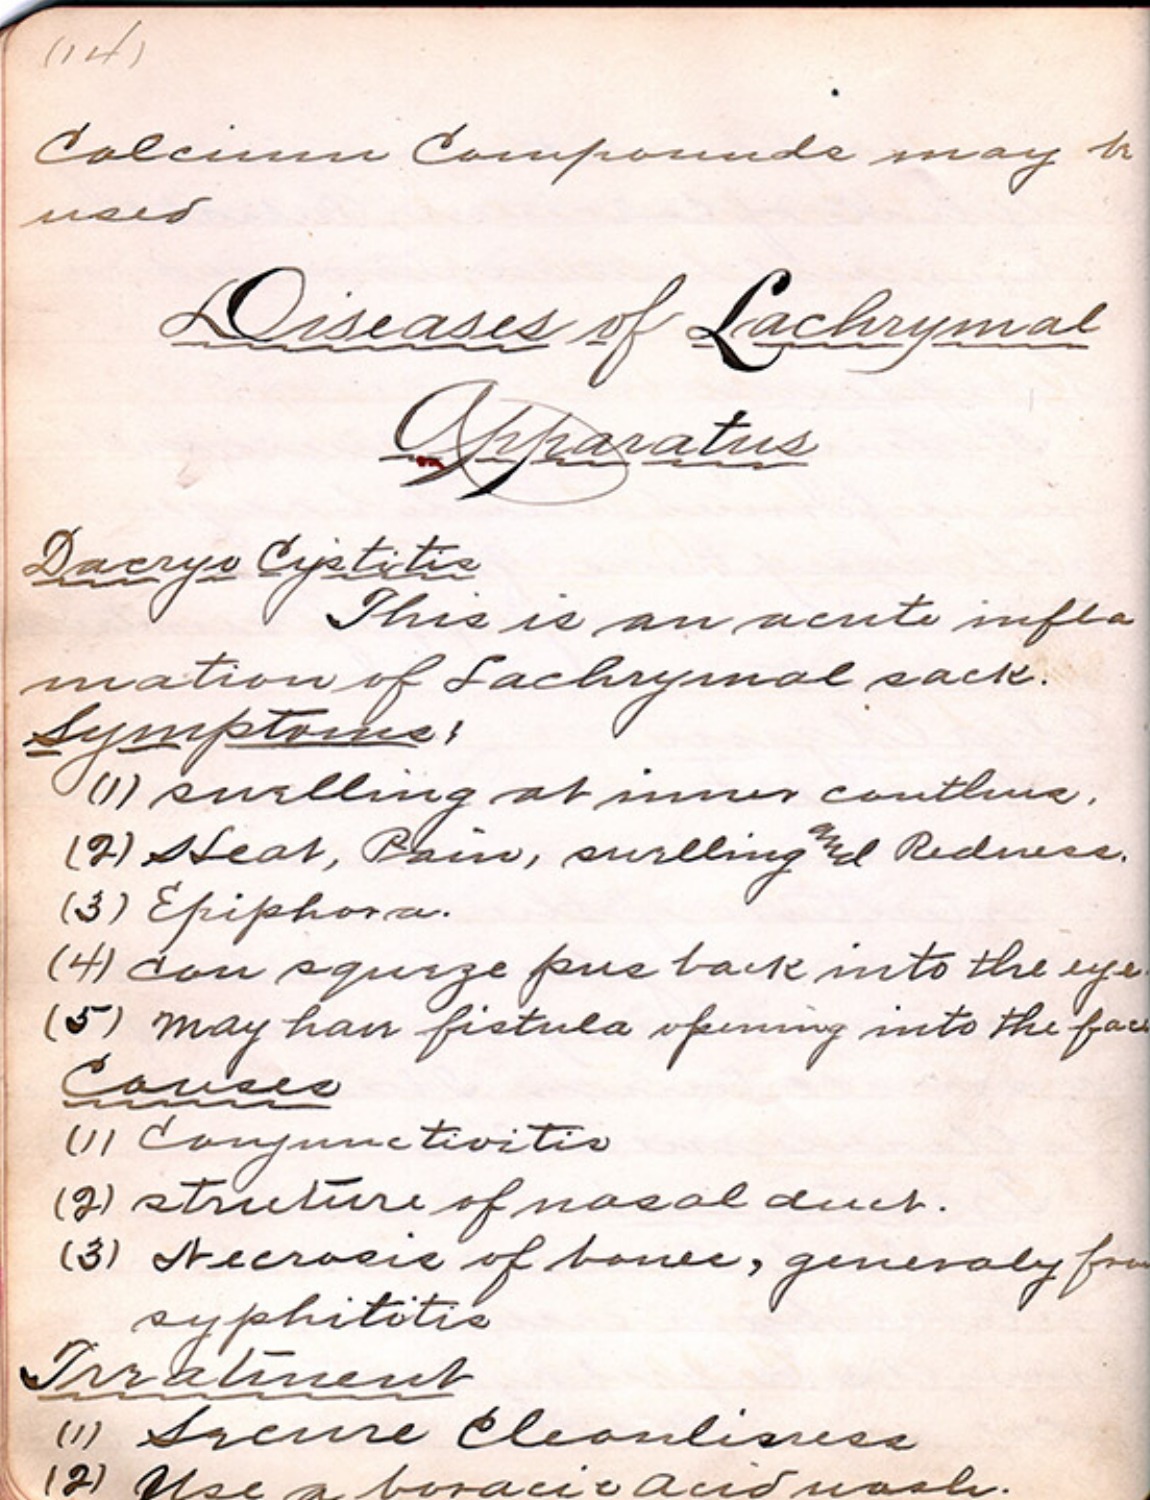 (14)
Calcium Compounds may b
used
Diseases of Lachrymal
Apparatus
Dacryo Cystitis
This is an acute infla
mation of Lachrymal sack.
Symptoms:
(1) swelling at inner canthus.
(2) Heat, Pain, swelling and Redness.
(3) Epiphora.
(4) can squeeze pus back into the eye.
(5) may have fistula opening into the face
Causes
(1) Conjunctivitis
(2) stricture of nasal duct.
(3) Necrosis of bones, generaly from
syphititis
Treatment
(1) Secure Cleanliness
(2) Use a boracic acid wash.